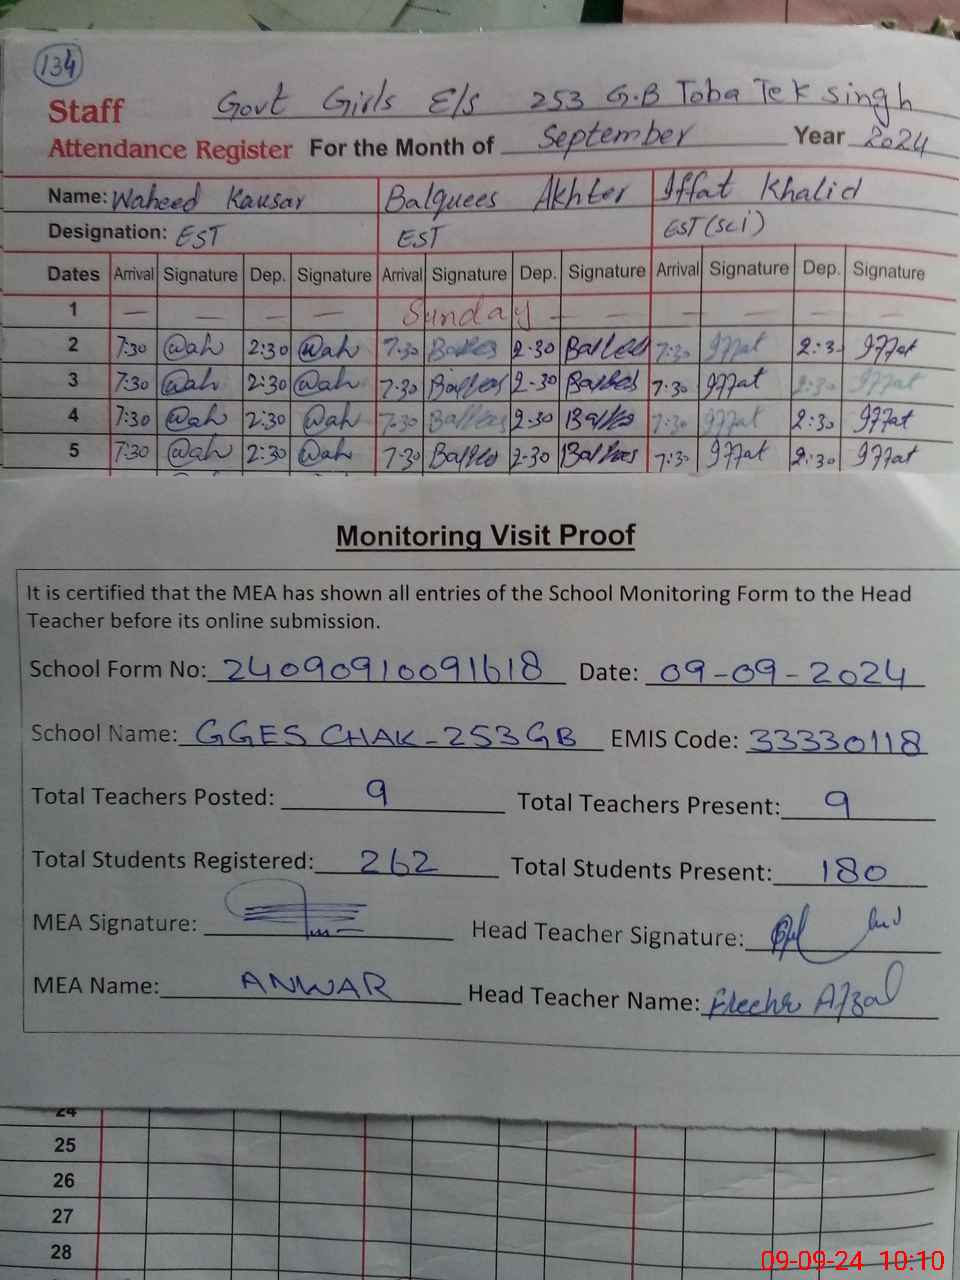 134
Staff Govt Girls E/s 253 G.B Toba Tek Singh
Attendance Register For the Month of September Year 2024
Name: Waheed Kausar Balquees Akhter Iffat Khalid
Designation: EST EST EST (Sci)
Dates Arrival Signature Dep. Signature Arrival Signature Dep. Signature Arrival Signature Dep. Signature
1 — — — — Sunday — — — — — —
2 7:30 @wah 2:30 @wah 7:30 2:30 7:30 Iffat 2:30 Iffat
3 7:30 @wah 2:30 @wah 7:30 2:30 7:30 Iffat 2:30 Iffat
4 7:30 @wah 2:30 @wah 7:30 2:30 7:30 Iffat 2:30 Iffat
5 7:30 @wah 2:30 @wah 7:30 2:30 7:30 Iffat 2:30 Iffat
Monitoring Visit Proof
It is certified that the MEA has shown all entries of the School Monitoring Form to the Head
Teacher before its online submission.
School Form No: 24090910091618 Date: 09-09-2024
School Name: GGES CHAK-253GB EMIS Code: 33330118
Total Teachers Posted: 9 Total Teachers Present: 9
Total Students Registered: 262 Total Students Present: 180
MEA Signature: Head Teacher Signature:
MEA Name: ANWAR Head Teacher Name: Afzal
24
25
26
27
28
09-09-24 10:10